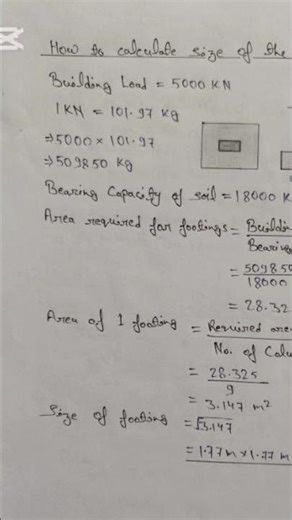 How to calculate size of the
Building Load = 5000 KN
1 KN = 101.97 kg
⇒ 5000 × 101.97
⇒ 509850 kg
Bearing Capacity of soil = 18000 K
Area required for footings = Buildin
Bearin
= 509850
18000
= 28.32
Area of 1 footing = Required area
No. of Colu
= 28.325
9
= 3.147 m²
Size of footing = √3.147
= 1.77 m × 1.77 m